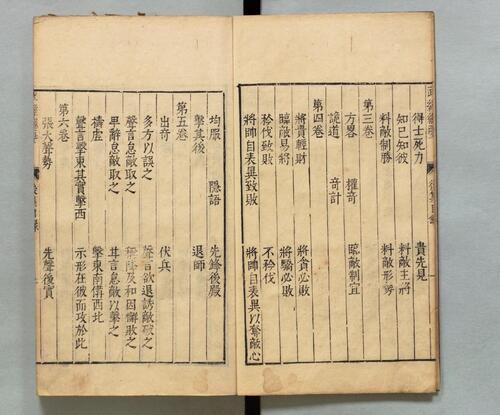 得士死力 貴先見
知已知彼 料敵主將
料敵制勝 料敵形勢
第三卷
方略 權奇 臨敵制宜
詭道 奇計
第四卷
將貴輕財 將貪必敗
臨敵易將 將驕必敗
矜伐致敗 不矜伐
將帥自表異致敗 將帥自表異以奪敵心
均服 隱語 先鋒後殿
擊其後 退師
第五卷
出奇 伏兵
多方以誤之 聲言欲退誘敵破之
聲言怠敵取之 因懈敗之
卑辭怠敵取之 甘言怠敵以擊之
擣虛 擊東南備西北
聲言擊東其實擊西 示形在彼而攻於此
第六卷
張大聲勢 先聲後實